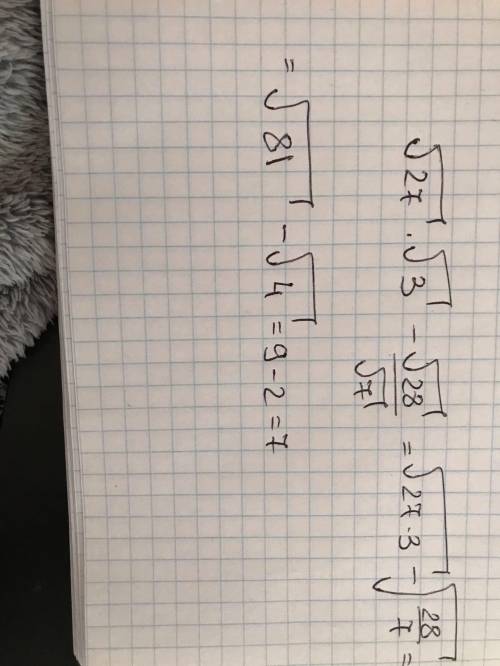 √27 · √3 − √28/√7 = √27·3 − √28/7 =
= √81 − √4 = 9 − 2 = 7